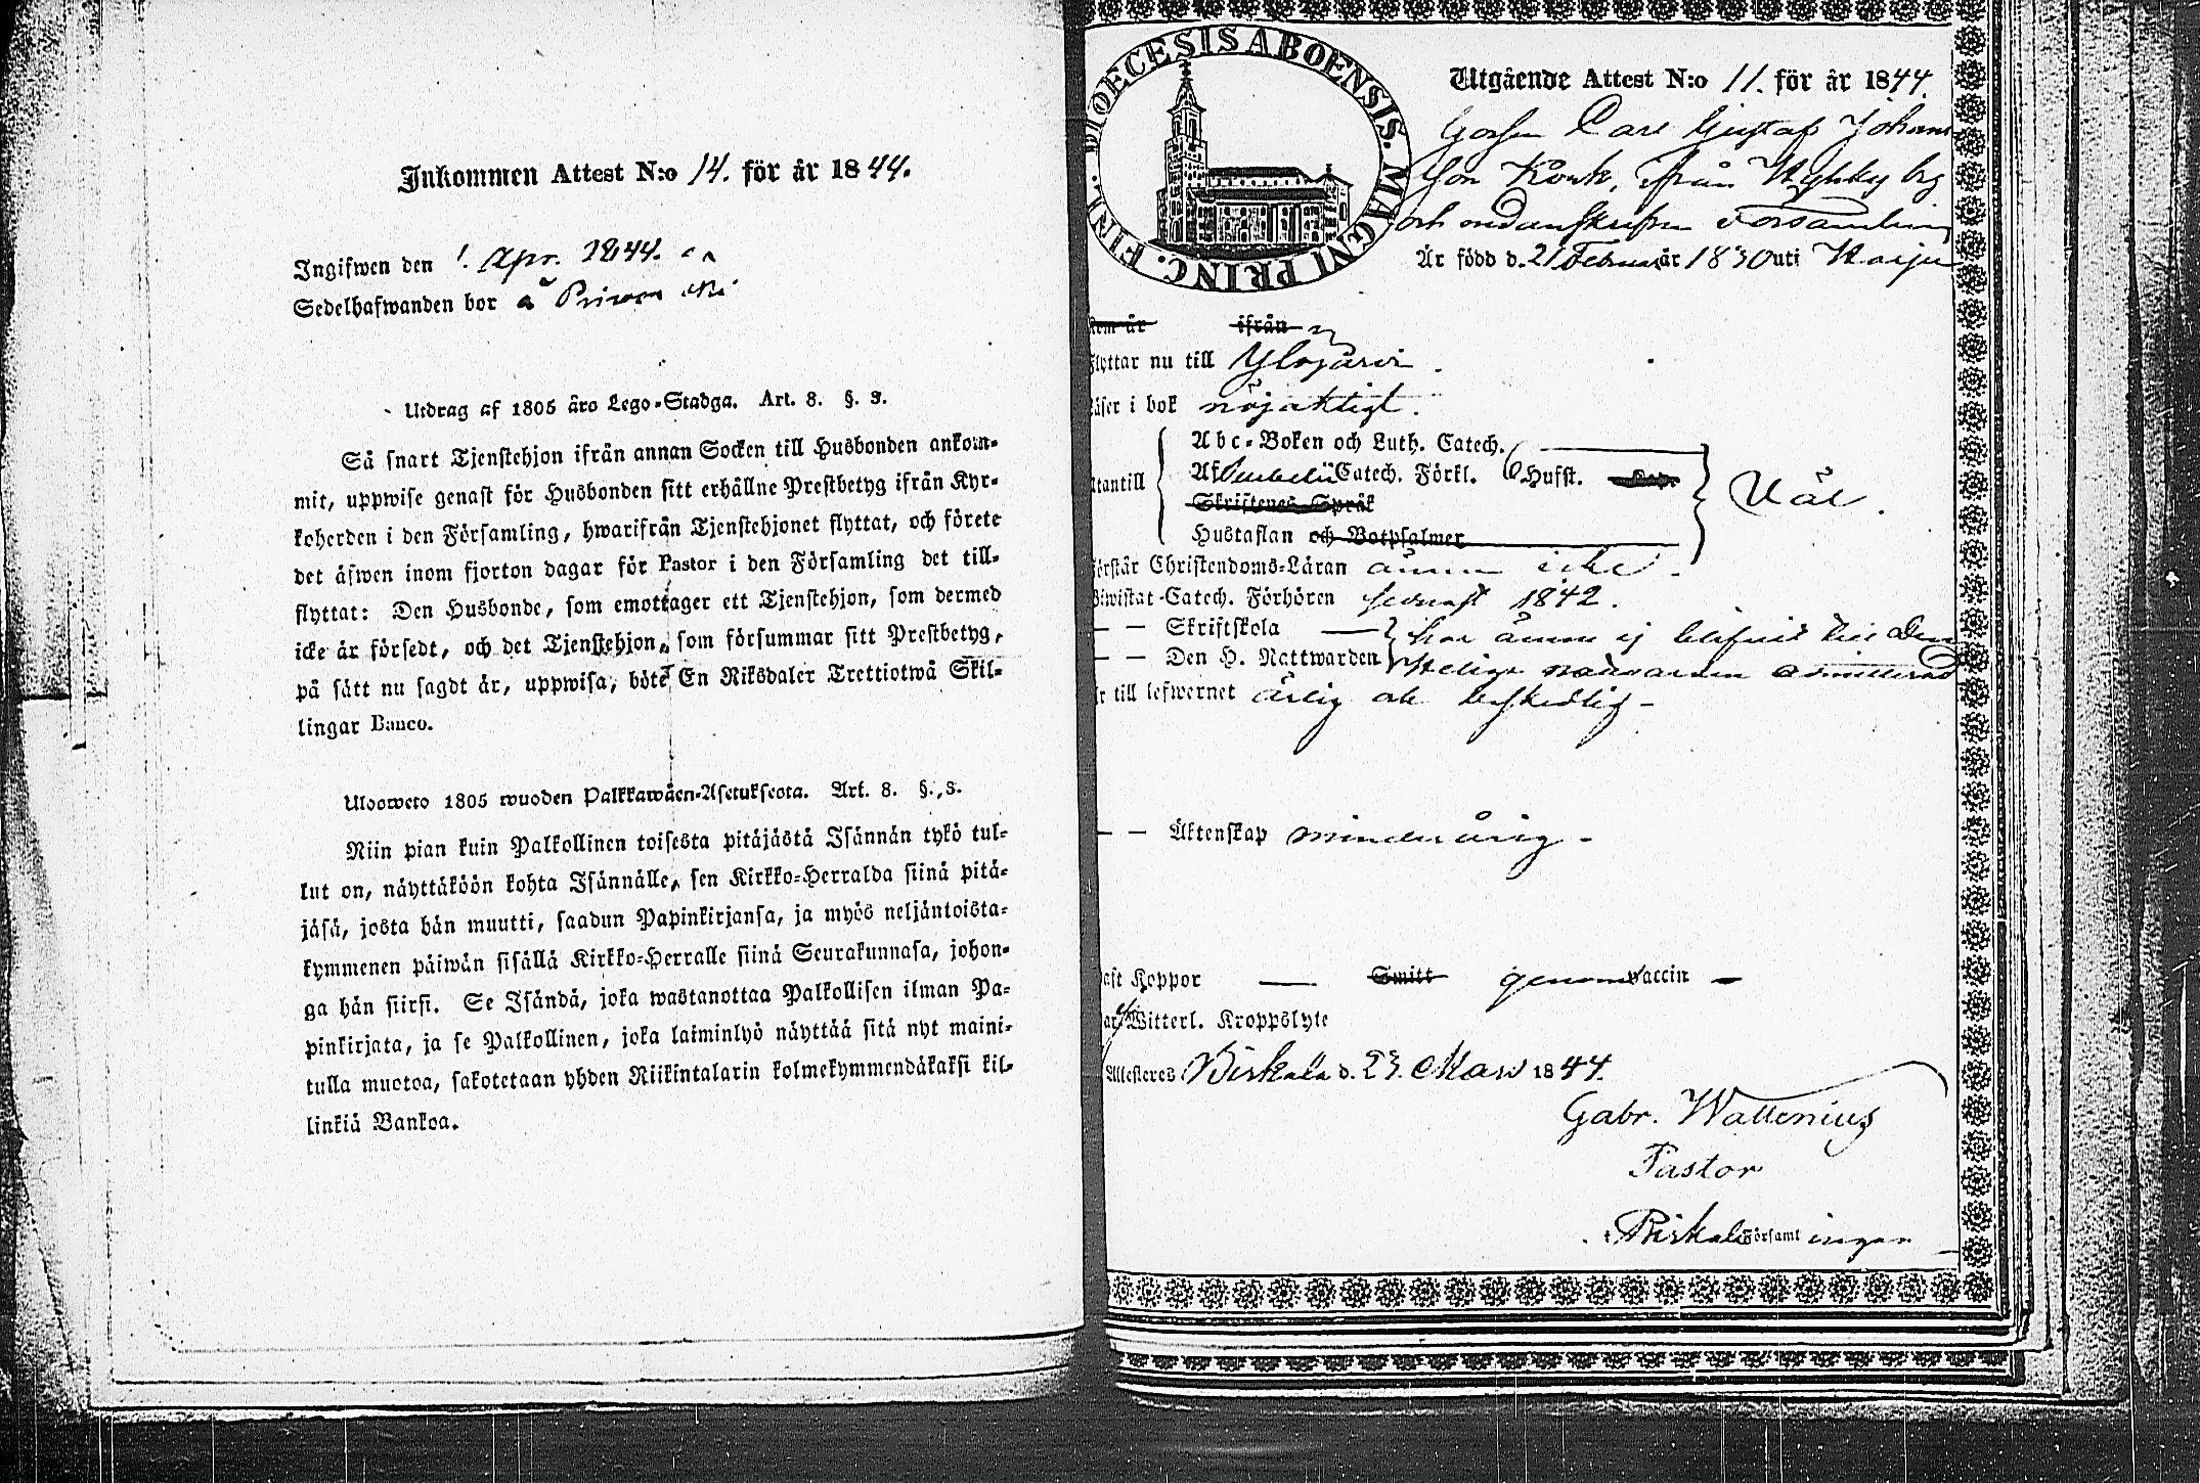 Inkommen Attest N:o 14. för år 1844.
Ingifwen den 1. Apr. 1844.
Sedelhafwanden bor å
Utdrag af 1805 års Lego-Stadga. Art. 8. §. 3.
Så snart Tjenstehjon ifrån annan Socken till Husbonden ankom-
mit, uppwise genast för Husbonden sitt erhållne Prestbetyg ifrån Kyr-
koherden i den Församling, hwarifrån Tjenstehjonet flyttat, och förete
det äfwen inom fjorton dagar för Pastor i den Församling det till-
flyttat: Den Husbonde, som emottager ett Tjenstehjon, som dermed
icke är försedt, och det Tjenstehjon, som försummar sitt Prestbetyg,
på sätt nu sagdt är, uppwisa, böte En Riksdaler Trettiotwå Skil-
lingar Banco.
Ulosweto 1805 wuoden Palkkawäen-Asetuksesta. Art. 8. §. 3.
Niin pian kuin Palkollinen toisesta pitäjästä Isännän tykö tul-
lut on, näyttäköön kohta Isännälle, sen Kirkko-Herralda siinä pitä-
jäsä, josta hän muutti, saadun Papinkirjansa, ja myös neljäntoista-
kymmenen päiwän sisällä Kirkko-Herralle siinä Seurakunnasa, johon-
ga hän siirsi. Se Isändä, joka wastanottaa Palkollisen ilman Pa-
pinkirjata, ja se Palkollinen, joka laiminlyö näyttää sitä nyt maini-
tulla muotoa, sakotetaan yhden Riikintalarin kolmekymmendäkaksi kil-
linkiä Bankoa.
DIOECESIS ABOENSIS. MAGNI PRINC. FINL.
Utgående Attest N:o 11. för år 1844.
Gossen Carl Gustaf Johans
son Konk, från Nykky by
och nedanskrefne Församling
Är född d. 21 Februar år 1830 uti Harju
kom år ifrån
Flyttar nu till Ylöjärvi.
Läser i bok nöjaktigt.
Utantill Abc-Boken och Luth. Catech.
Af Svebelii Catech. Förkl. Hufst. Wäl.
Skriftenes Språk
Hustaflan och Botpsalmer
Förstår Christendoms-Läran ännu icke.
Biwistat Catech. Förhören senast 1842.
— — Skriftskola — har ännu ej blifvit till Den
— — Den H. Nattwarden Heliga nattvarden admitterad
Är till lefwernet ärlig och beskedlig -
— — Äktenskap minderårig -
Haft Koppor — Smitt genom Vaccin —
Har ej Witterl. Kroppslyte
Attesteres Birkala d. 23. Mars 1844.
Gabr. Wallenius
Pastor
i Birkala Församlingen